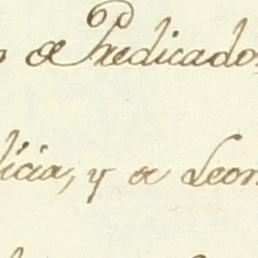 a Predicado
licia, y a Leon